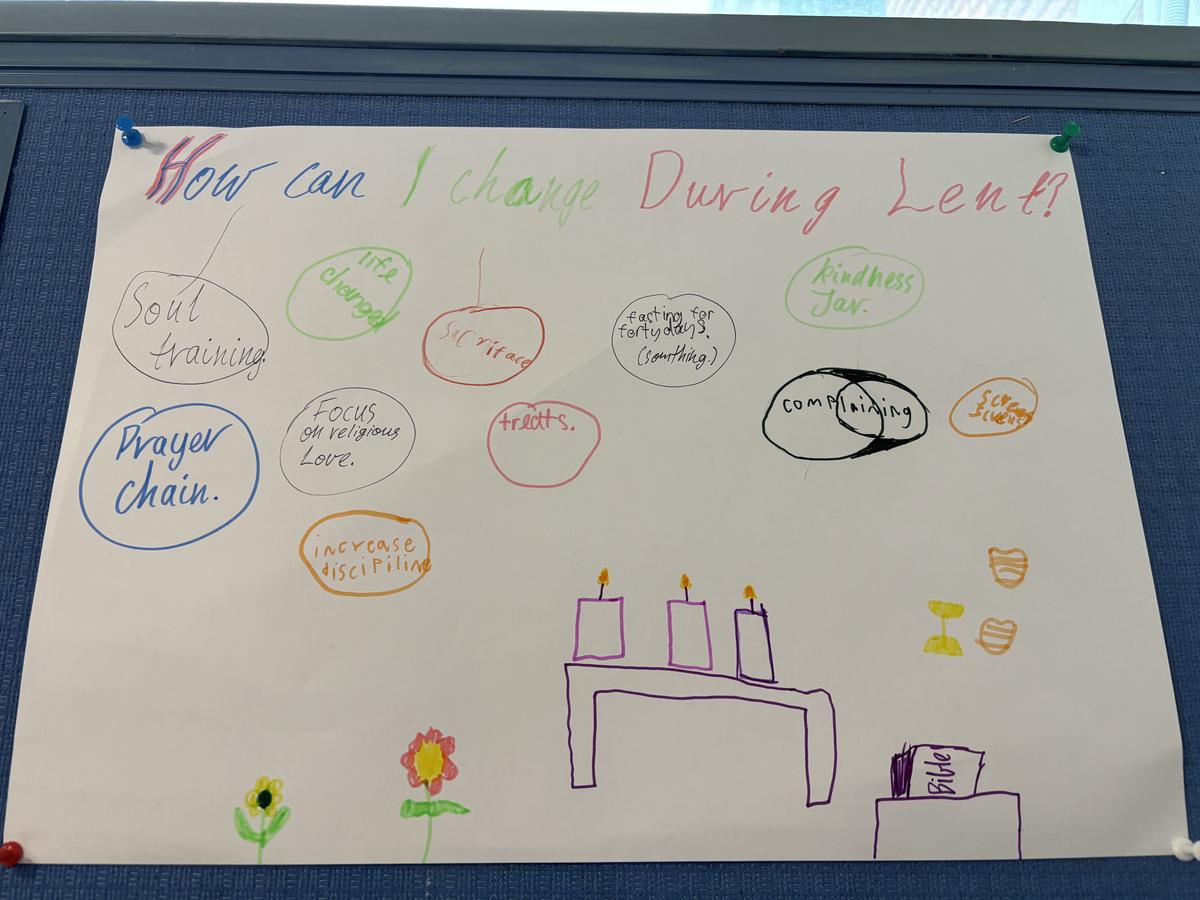 How can I change During Lent?
Soul
training.
life
changed
Sacriface
fasting for
forty days.
(somthing.)
kindness
Jar.
Prayer
chain.
Focus
on religious
Love.
treats.
complaining
increase
discipiline
Bible